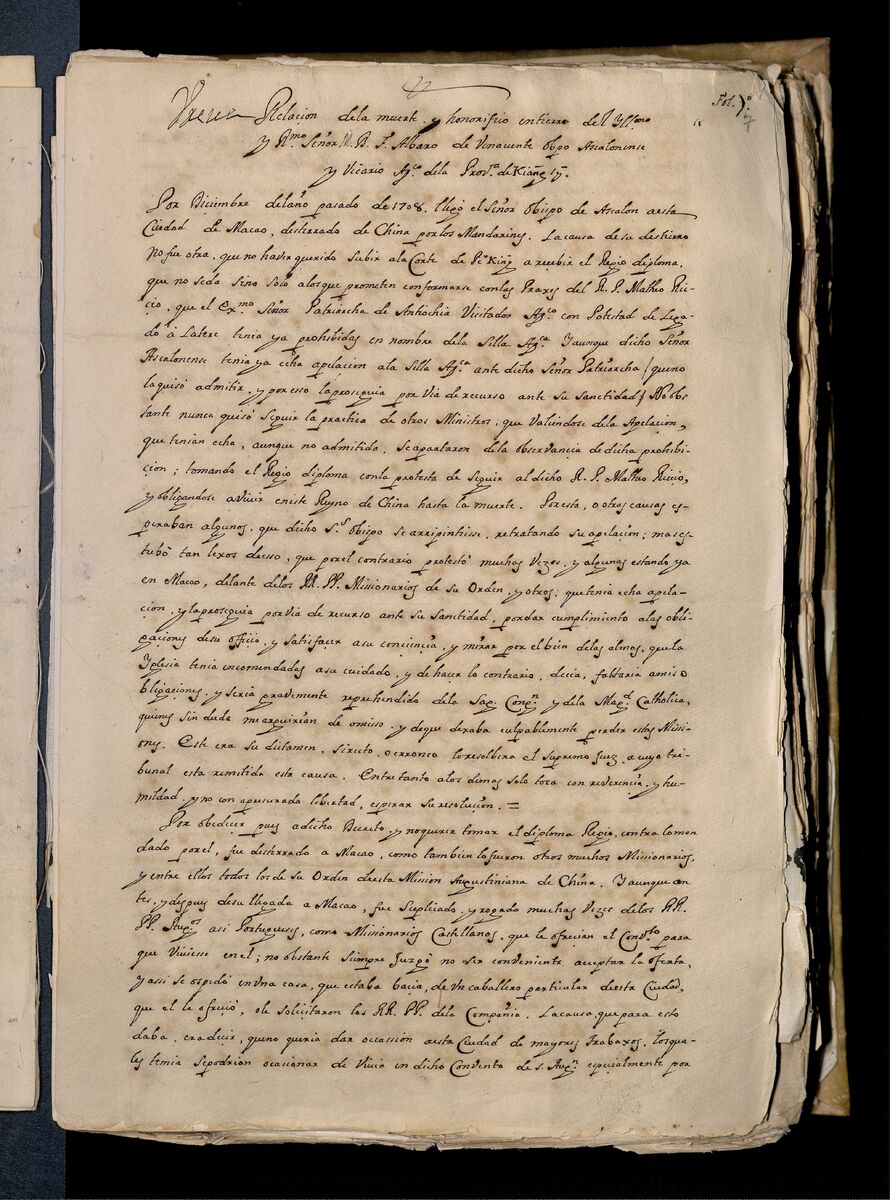 Fol. 7.
7
Breve Relacion dela muerte, y honorifico entierro del Yll.mo
y R.mo Señor M. D. F. Albaro de Venavente Obpo Ascalonense
y Vicario Ap.co dela Prov.a de Kiang sy.
Por Diciembre delaño pasado de 1708. llegò el Señor Obispo de Ascalon aesta
Ciudad de Macao, desterrado de China porlos Mandarines. La causa de su destierro
no fue otra, que no haver querido subir ala Corte de Pe King a recebir el Regio diploma,
que no seda sino solo alosque prometen conformarse conlas Praxes del R. P. Matheo Ric-
cio, que el Ex.mo Señor Patriarcha de Antiochia Visitador Ap.co con Potestad de Lega-
do â Latere tenia ya prohibidas en nombre dela Silla Ap.ca Yaunque dicho Señor
Ascalonense tenia ya echa apelacion ala Silla Ap.ca ante dicho Señor Patriarcha (queno
laquisò admitir, y poresso laproseguia por via de recurso ante su Sanctidad) No obs
tante nunca quisò seguir la practica de otros Ministros, que valiendose dela Apelacion,
que tenian echa, aunque no admitida, se apartaron dela observancia de dicha prohibi-
cion; tomando el Regio diploma conla protesta de seguir al dicho R. P. Matheo Riccio,
y obligandose avivir eneste Reyno de China hasta la muerte. Poresta, o otras causas es-
peraban algunos, que dicho S.r Obispo se arripintiesse, retratando su apelacion; mas es-
tubò tan lexos deesso, que porel contrario protestò muchas vezes, y algunas estando ya
en Macao, delante delos RR. PP. Missionarios de su Orden, y otros; que tenia echa apela-
cion, y laproseguia porvia de recurso ante su Sanctidad, pordar cumplimiento alas obli-
gaciones desu officio, y satisfacer asu conciencia, y mirar por el bien delas almas, que la
Yglesia tenia encomendadas asu cuidado, y de hacer lo contrario, decia, faltaria amis o
bligaciones, y seria gravemente reprehendido dela Sag. Cong.n y dela Mag.d Catholica,
quienes sin duda mearguirian de omisso, y deque dexaba culpablemente perder estas Missi-
ones. Este era su dictamen, sirecto, o erroneo loresolbera el supremo Juez, acuyo tri-
bunal esta remitida esta causa. Entretanto alos demas solo toca con reverencia, y hu-
mildad, y no con apresurada libertad, esperar su resolucion. =
Por obedecer pues adicho Decreto, y noquerer tomar el diploma Regio, contra loman
dado porel, fue desterrado a Macao, como tambien lo fueron otros muchos Missionarios,
y entre ellos todos los de su Orden deesta Mission Augustiniana de China. Yaunque an
tes, y despues desu llegada a Macao, fue suplicado, y rogado muchas vezes delos RR.
PP. Aug.os asi Portugueses, como Missionarios Castellanos, que le ofrecian el Conv.to para
que viviesse en el; no obstante siempre juzgò no ser conveniente acceptar la oferta,
y assi se ospedò en una casa, que estaba bacia, de un caballero particular deesta Ciudad,
que el le ofreciò, ole solicitaron los RR. PP. dela Compañia. La causa, que para esto
daba, era decir, que no queria dar occassion aesta Ciudad de mayores trabaxos, losqua-
les temia sepodrian ocasionar de vivir en dicho Convento de S. Aug.n especialmente por